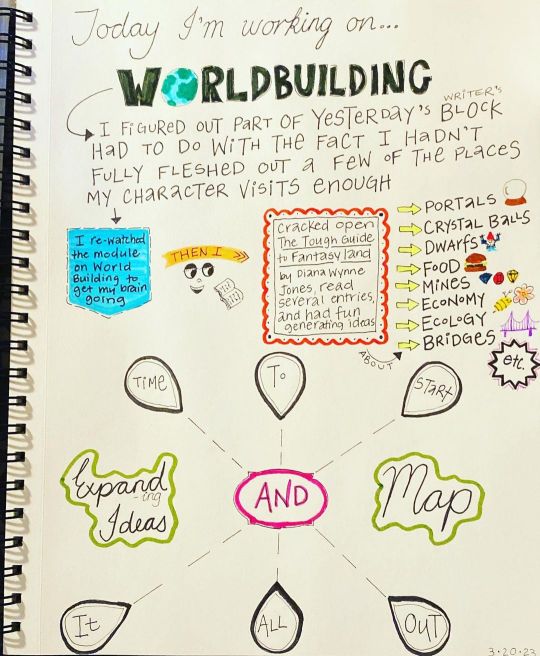 Today I'm working on...
WORLDBUILDING
I FIGURED OUT PART OF YESTERDAY'S WRITER'S BLOCK
HAD TO DO WITH THE FACT I HADN'T
FULLY FLESHED OUT A FEW OF THE PLACES
MY CHARACTER VISITS ENOUGH
I re-watched
the module
on World
Building to
get my brain
going
THEN I
Cracked open
The Tough Guide
to Fantasyland
by Diana Wynne
Jones, read
several entries,
and had fun
generating ideas
ABOUT
PORTALS
CRYSTAL BALLS
DWARFS
FOOD
MINES
ECONOMY
ECOLOGY
BRIDGES
etc.
TIME
TO
START
Expand
ing
Ideas
AND
Map
It
ALL
OUT
3.20.23